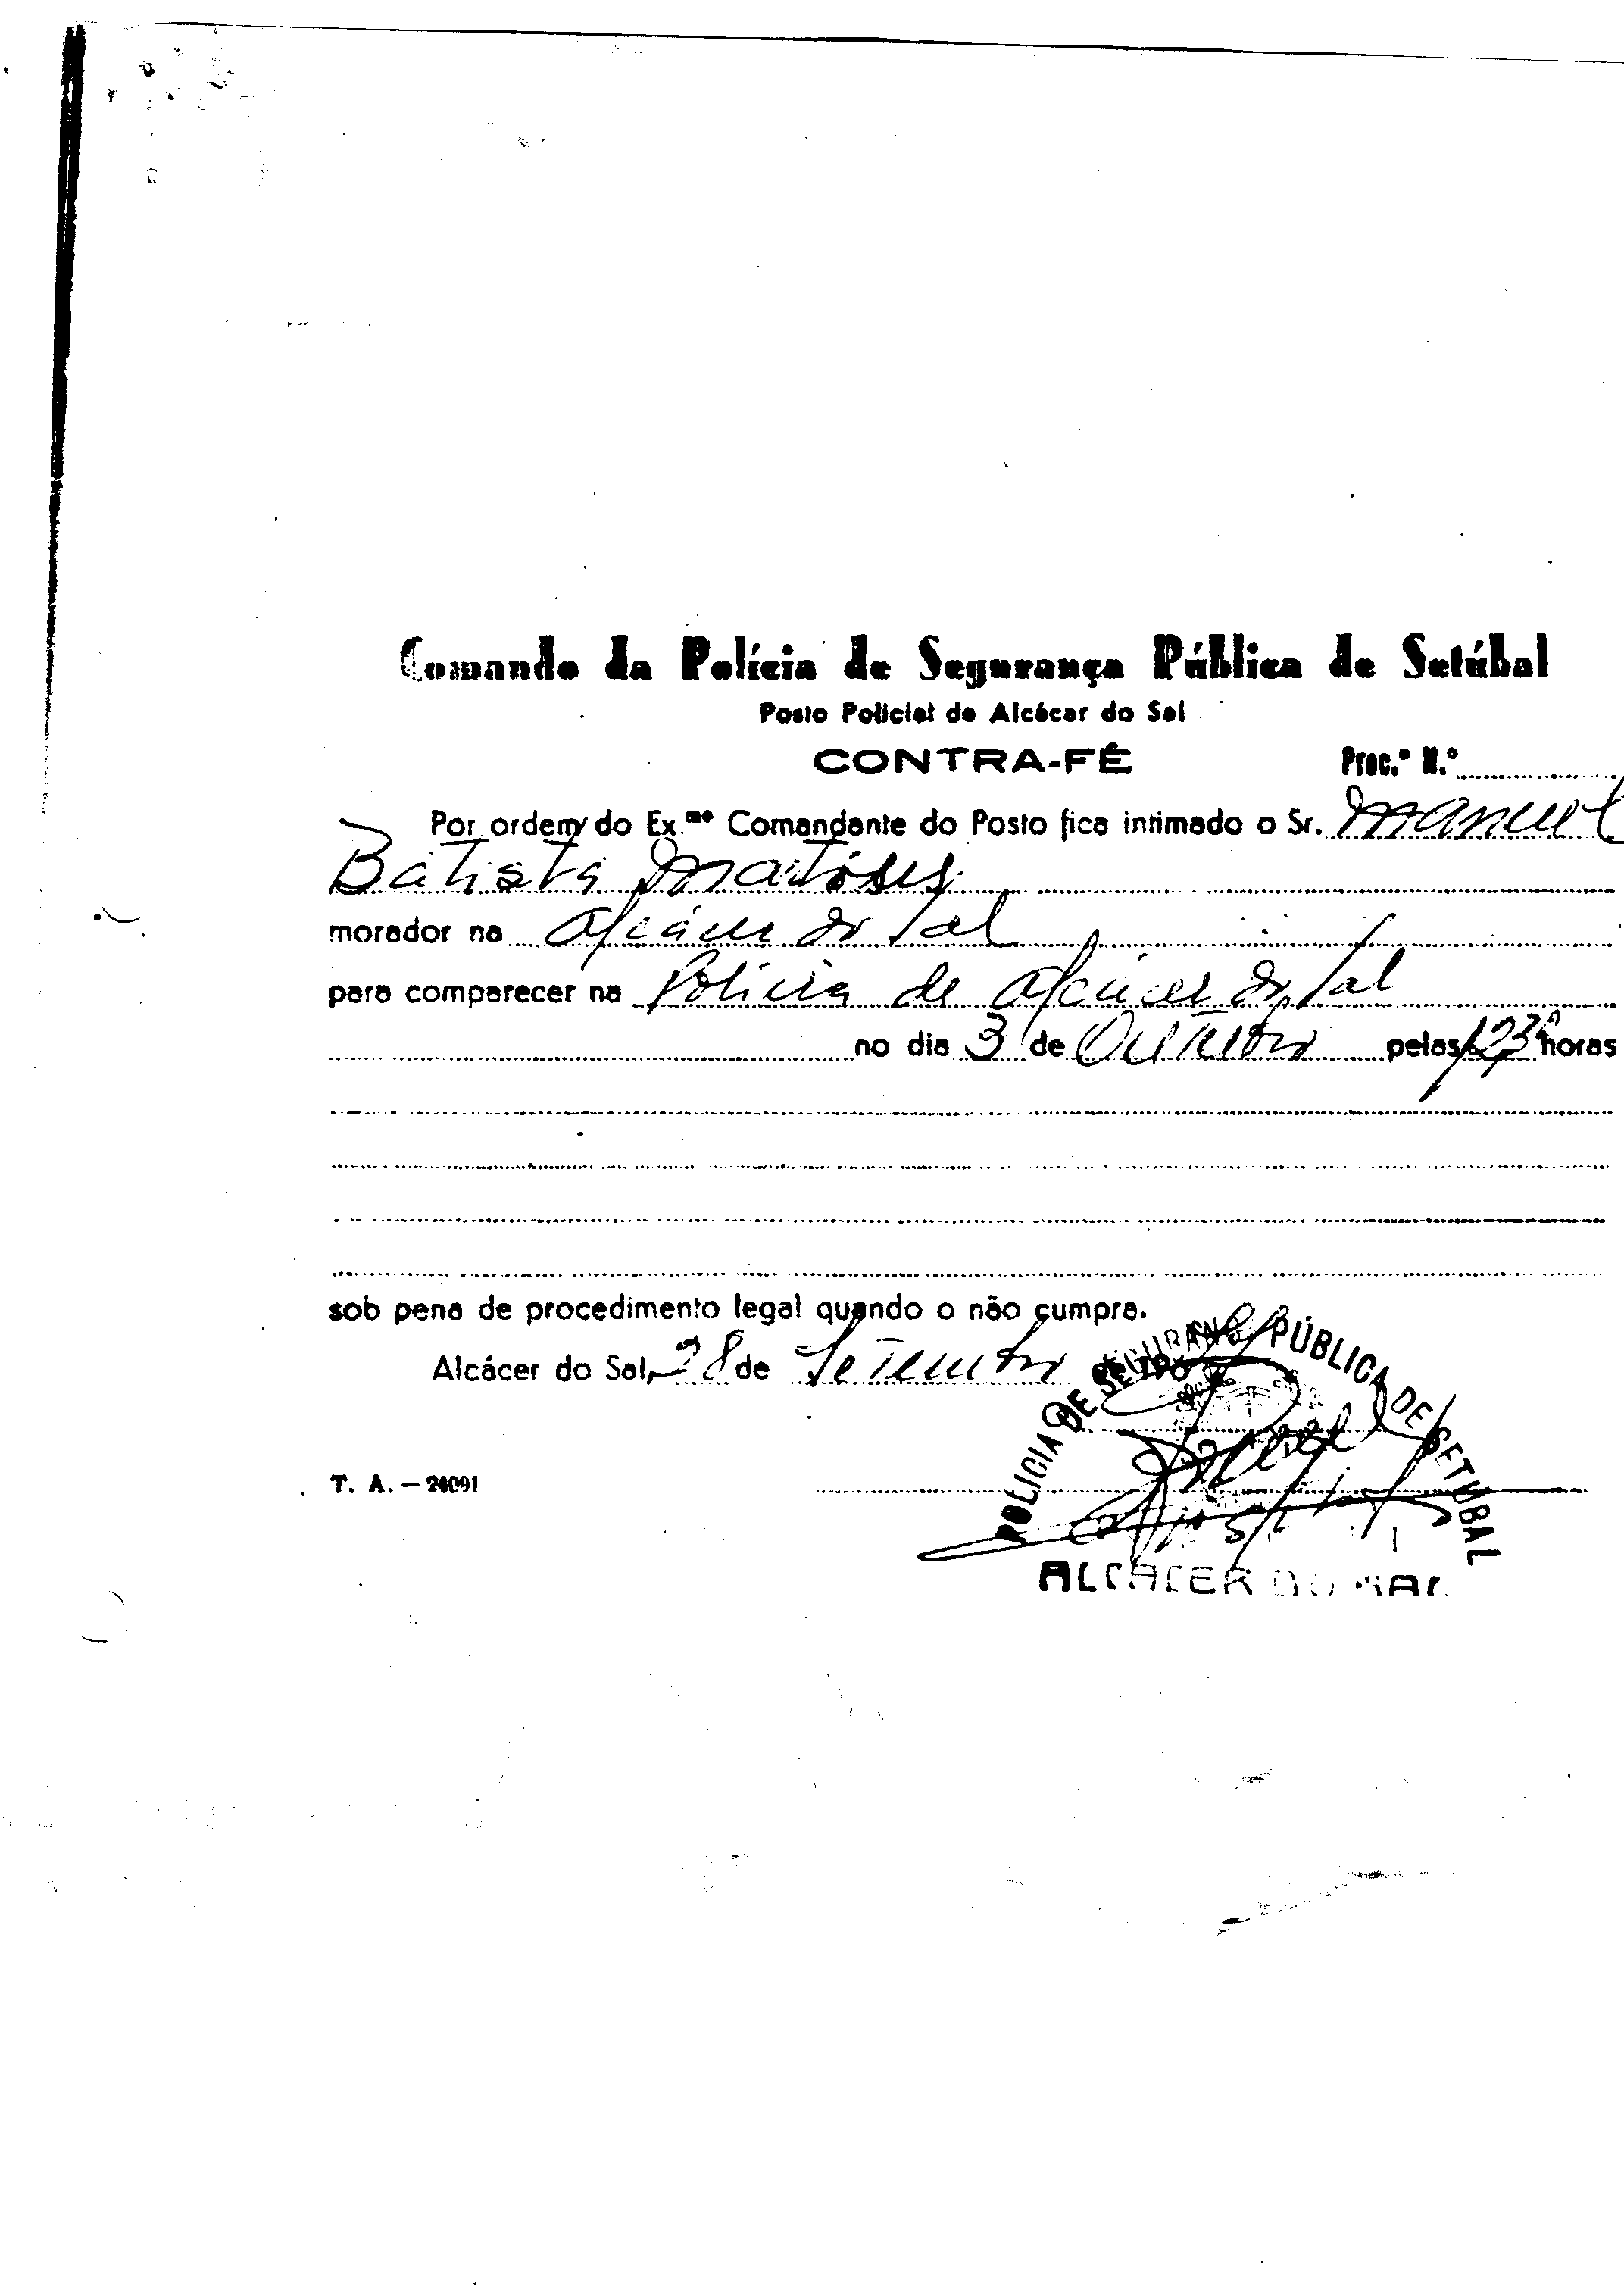 Comando da Polícia de Segurança Pública de Setúbal
Posto Policial de Alcácer do Sal
CONTRA-FÉ Proc.º N.º
Por ordem do Ex.mo Comandante do Posto fica intimado o Sr. Manuel
Batista Matoses
morador na Alcácer do Sal
para comparecer na Policia de Alcácer do Sal
no dia 3 de Outubro pelas horas
sob pena de procedimento legal quando o não cumpra.
Alcácer do Sal, 28 de Setembro de
POLICIA DE SEGURANÇA PÚBLICA DE SETUBAL
T. A. — 24091
ALCACER DO SAL